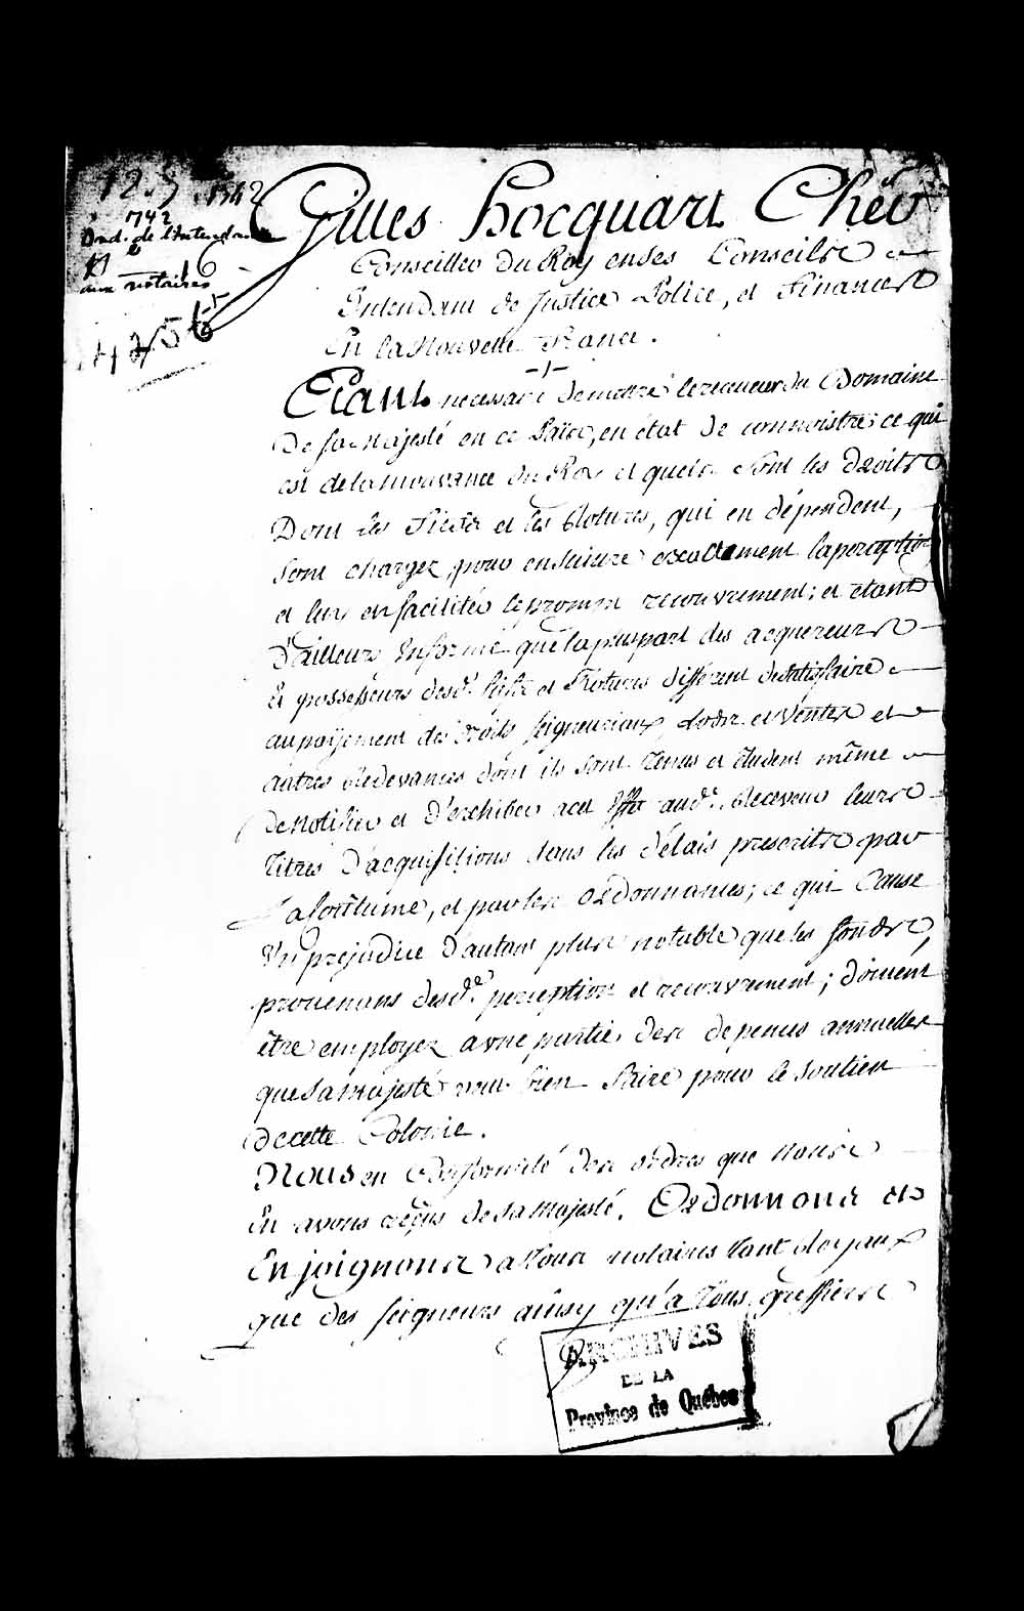 12.5.1742
742
Ord. de l'Intendant
aux notaires
Gilles hocquart Chev
Conseiller Du Roy en ses Conseils
Intendant de Justice Police, et Finances
En la Nouvelle France.
Etant necessaire de mettre le receveur du Domaine
De sa Majesté en ce Païs, en état de connoistre ce qui
est de la mouvance du Roy et quels sont les Droits
Dont les Fiefs et les Rotures, qui en dépendent,
sont chargez, pour en suivre exactement la perception
et luy en faciliter le prompt recouvrement; et étant
D'ailleurs Informé que la pluspart des acquereurs
Et possesseurs desd. fiefs et Rotures different de satisfaire
au payement des Droits seigneuriaux, lods et ventes et
autres Redevances dont ils sont tenus et éludent même
De Notifier et D'exhiber a cet Effet aud. Receveur leurs
Titres D'acquisitions dans les délais prescrits par
La Coutume, et par les Ordonnances; ce qui Cause
Un prejudice D'autant plus notable que les fonds,
provenans desd. perception et recouvrement; doivent
être employez a une partie des depences annuelles
que sa Majesté veut bien faire pour le soutien
De cette Colonie.
Nous en Conformité des ordres que Nous
En avons reçus de sa Majesté. Ordonnons et
Enjoignons a Tous notaires tant Royaux
que des seigneurs ainsy qu'a Tous greffiers
ARCHIVES
DE LA
Province de Québec